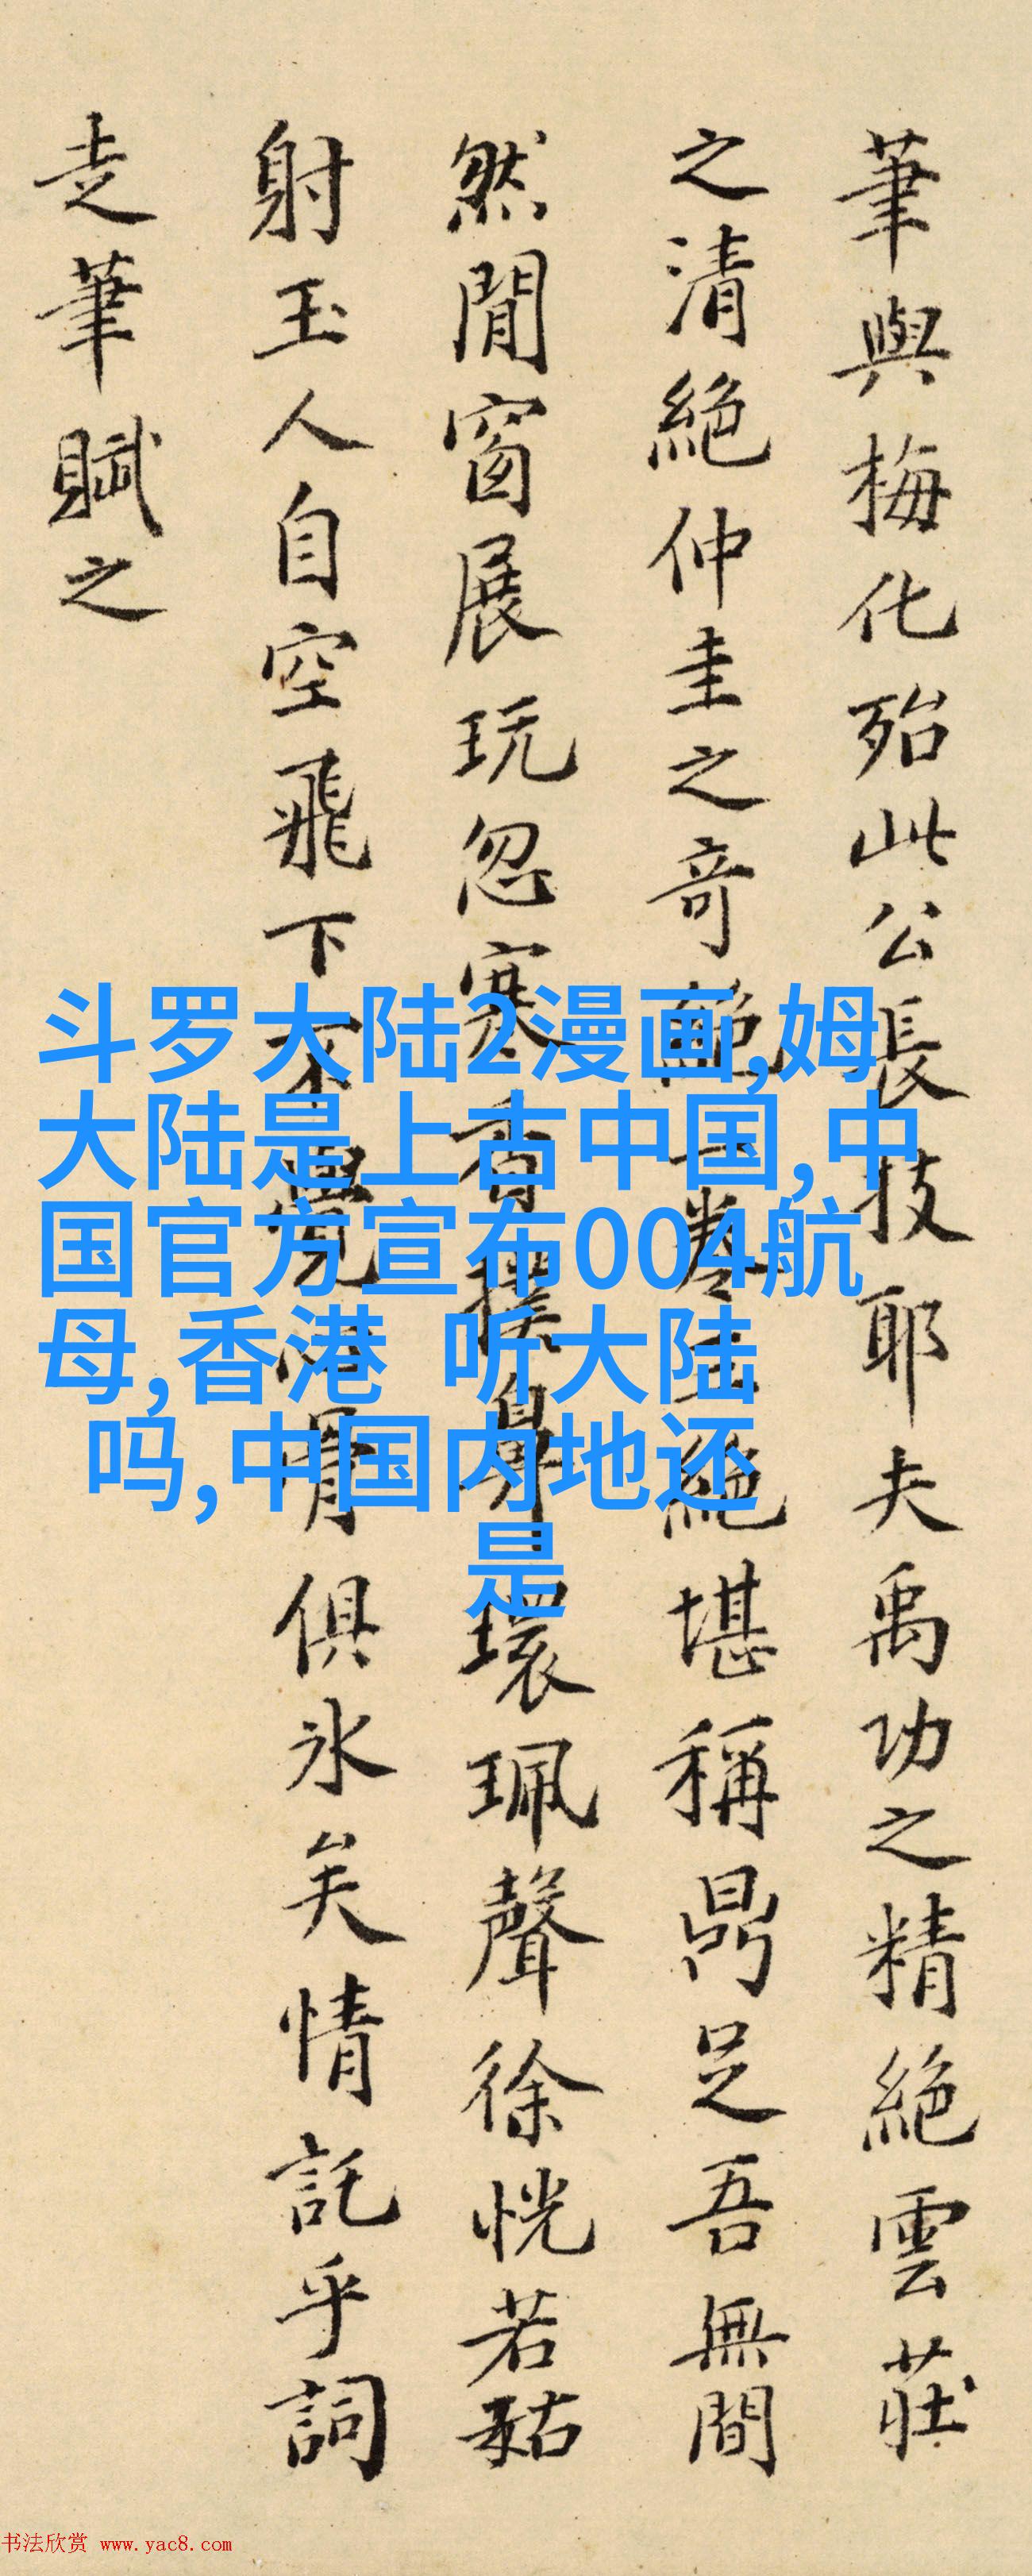 筆與梅化殆此公長技耶夫禹功之精絕雲莊
之清絕仲圭之奇絕一卷三絕堪稱鼎足吾無間
然閒窗展玩忽寒香撲鼻環珮聲徐恍若
射玉人自空飛下不覺心骨俱冰矣情託乎詞
走筆賦之
斗罗大陆2漫画,姆
大陆是上古中国,中
国官方宣布004航
母,香港 听大陆
吗,中国内地还
是
书法欣赏 www.yac8.com